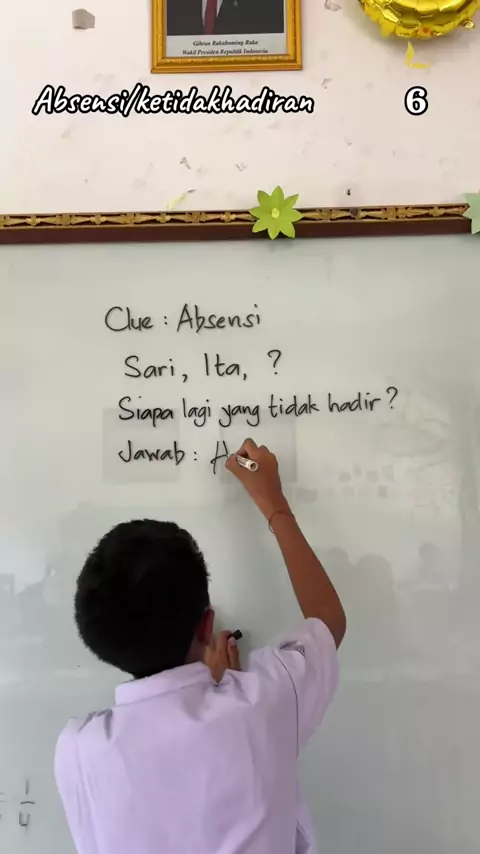 Gibran Rakabuming Raka
Wakil Presiden Republik Indonesia
Absensi/ketidakhadiran
6
Clue : Absensi
Sari, Ita, ?
Siapa lagi yang tidak hadir?
Jawab : A
1
4